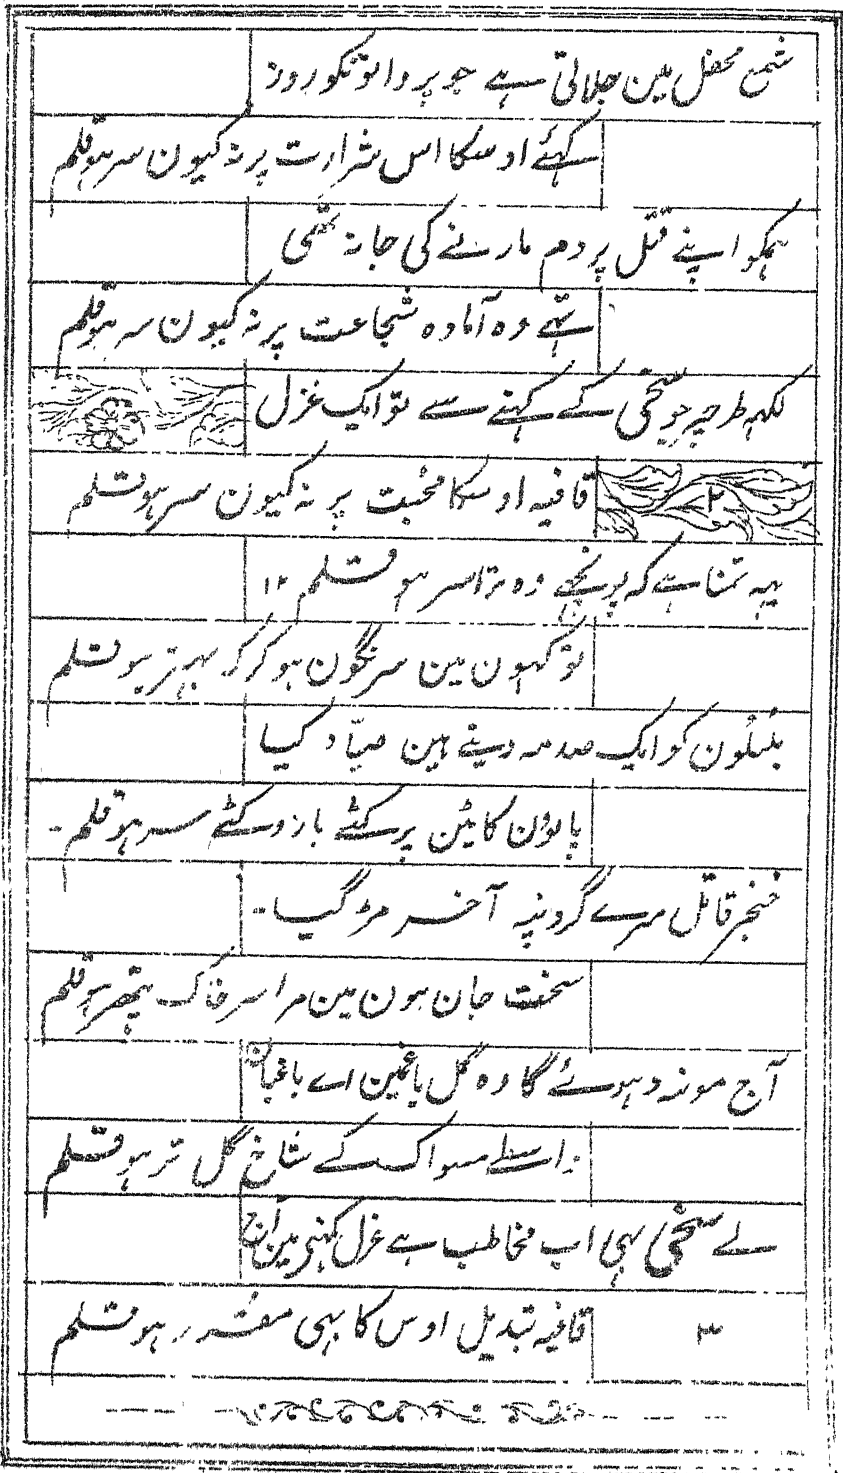 شمع محفل مین جلاتی ہے جو پروانونکو روز
کہئے اوسکا اس شرارت پر نہ کیون سر ہو قلم
ہمکو اپنے قتل پر دم مارنے کی جا نہ تھمی
تہے وہ آمادہ شجاعت پر نہ کیون سر ہو قلم
لکہہ طرحپر جو سخمی کے کہنے سے تو ایک غزل
۲
قافیہ اوسکا محبت پر نہ کیون سر ہو قلم
یہہ تمنا ہے کہ پونچے وہ ترا سر ہو قلم ۱۲
تو کہون مین سرنگون ہو کر کہ بہتر ہو قلم
بلبلون کو ایک صدمہ دیتے ہین صیّاد کیا
پانوُن کاٹین پر کٹے بازو کٹے سر ہو قلم ۔
خنجر قاتل مرے گردنپہ آخر مڑ گیا ۔
سخت جان ہون مین مرا سر خاک پتھر ہو قلم
آج مونہ دہوئے گا وہ گل باغمین اے باغبان
واسطے مسواک کے شاخ گل تر ہو قلم
لے سخمی یہی اب مخاطب ہے غزل کہنی مین آج
قافیہ تبدیل اوس کا بہی مقدر ہو قلم
۳